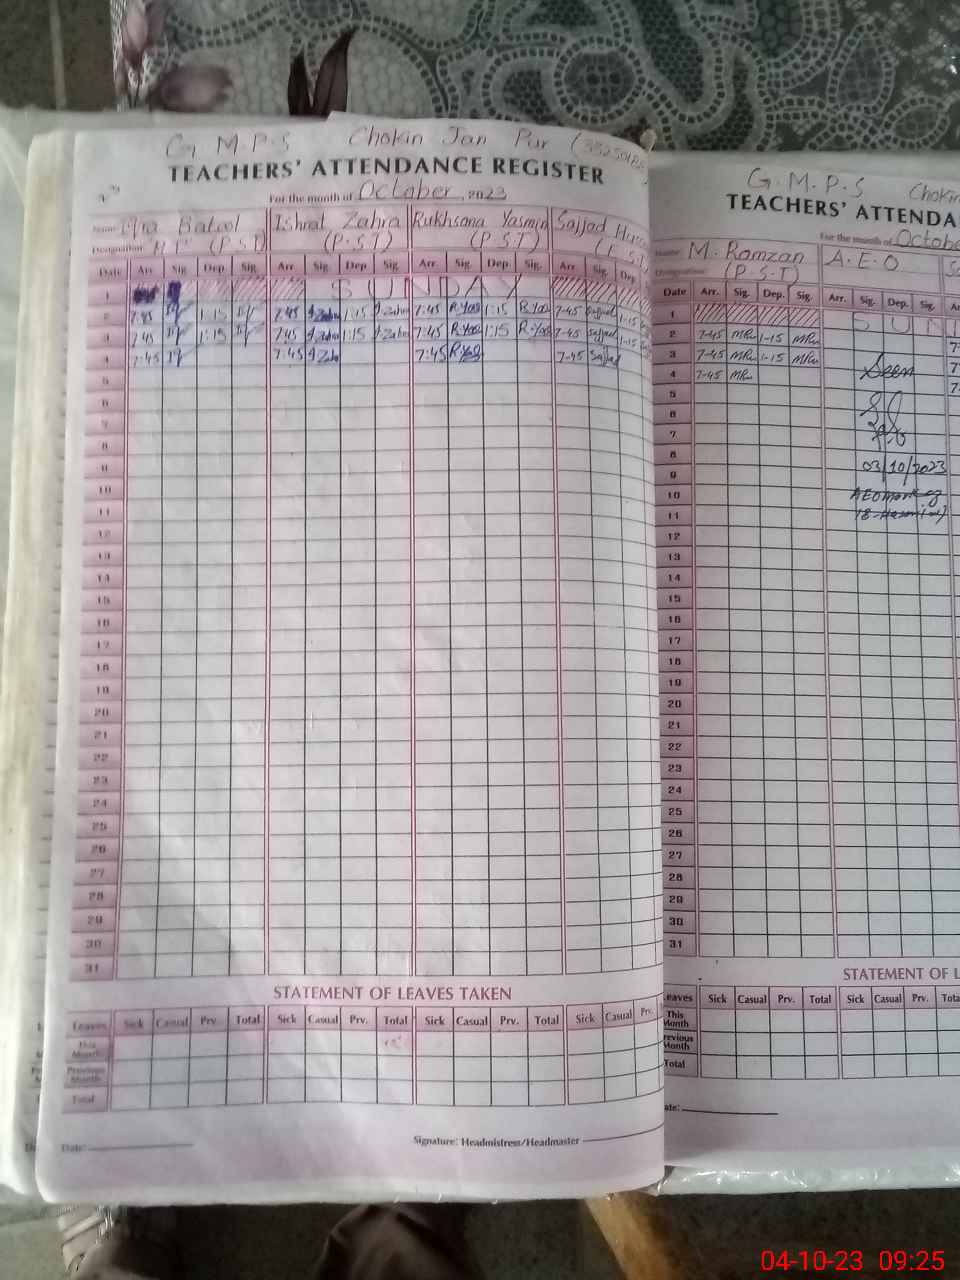 G.M.P.S Chokin Jan Pur
TEACHERS' ATTENDANCE REGISTER
For the month of October, 2023
Name Iqra Batool Ishrat Zahra Rukhsana Yasmin Sajjad
Designation (P.S.T) (P.S.T) (P.S.T)
Date Arr. Sig. Dep. Sig. Arr. Sig. Dep. Sig. Arr. Sig. Dep. Sig. Arr. Sig. Dep.
1 SUNDAY
2 7:45 1:15 7:45 1:15 7:45 1:15 7-45 Sajjad 1-15
3 7:45 1:15 7:45 1:15 7:45 1:15 7-45 Sajjad 1-15
4 7:45 7:45 7:45 7-45 Sajjad
5
6
7
8
9
10
11
12
13
14
15
16
17
18
19
20
21
22
23
24
25
26
27
28
29
30
31
STATEMENT OF LEAVES TAKEN
Leaves Sick Casual Prv. Total Sick Casual Prv. Total Sick Casual Prv. Total Sick Casual Prv.
This Month
Previous Month
Total
Date:
Signature: Headmistress/Headmaster
G.M.P.S Chokin
TEACHERS' ATTENDA
For the month of October
Name M. Ramzan A.E.O
Designation: (P.S.T)
Date Arr. Sig. Dep. Sig. Arr. Sig. Dep. Sig.
1 SUN
2 7-45 1-15
3 7-45 1-15 Seen
4 7-45
5
6
7
8
9 03/10/2023
10
11
12
13
14
15
16
17
18
19
20
21
22
23
24
25
26
27
28
29
30
31
STATEMENT OF L
eaves Sick Casual Prv. Total Sick Casual Prv. Tota
This Month
revious Month
Total
ate:
04-10-23 09:25